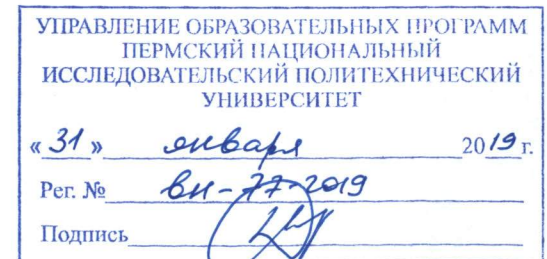 УПРАВЛЕНИЕ ОБРАЗОВАТЕЛЬНЫХ ПРОГРАММ
ПЕРМСКИЙ НАЦИОНАЛЬНЫЙ
ИССЛЕДОВАТЕЛЬСКИЙ ПОЛИТЕХНИЧЕСКИЙ
УНИВЕРСИТЕТ
«31» января 2019 г.
Рег. № вн-77-2019
Подпись